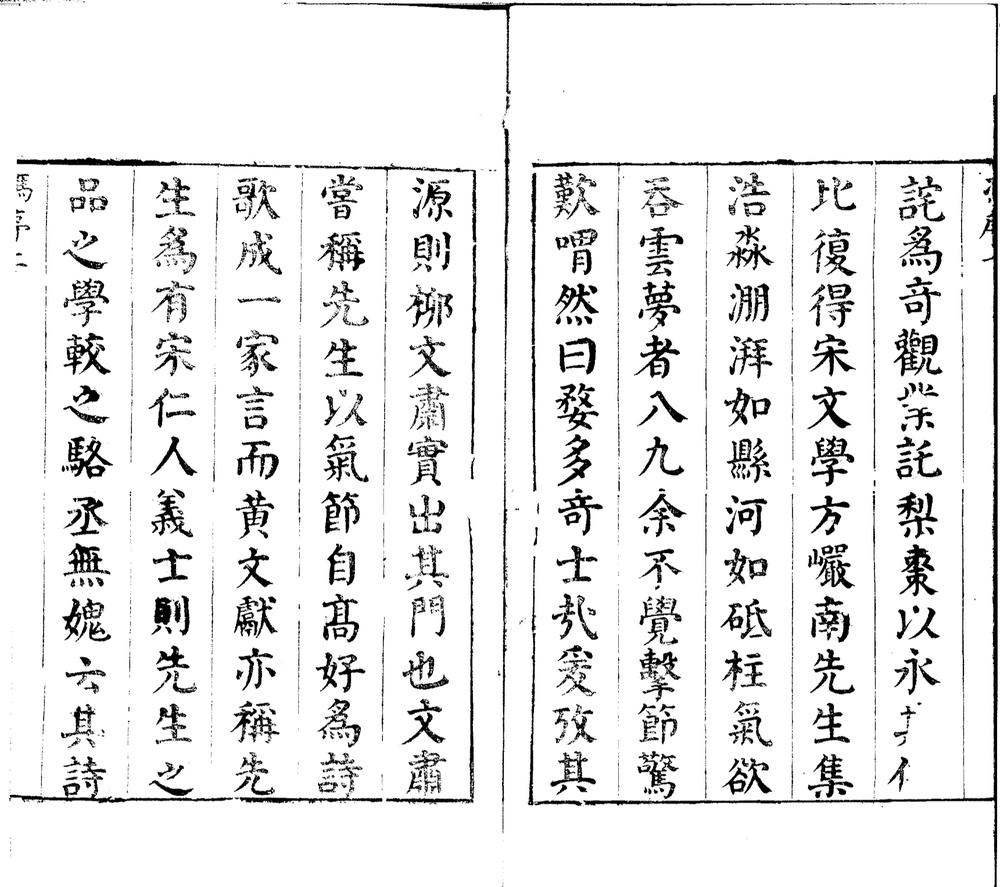 詫爲奇觀業託梨棗以永其傳
比復得宋文學方巖南先生集
浩淼淜湃如縣河如砥柱氣欲
吞雲夢者八九余不覺擊節驚
歎喟然曰婺多奇士哉爰攷其
源則栁文肅實出其門也文肅
嘗稱先生以氣節自高好爲詩
歌成一家言而黄文獻亦稱先
生爲有宋仁人義士則先生之
品之學較之駱丞無媿云其詩